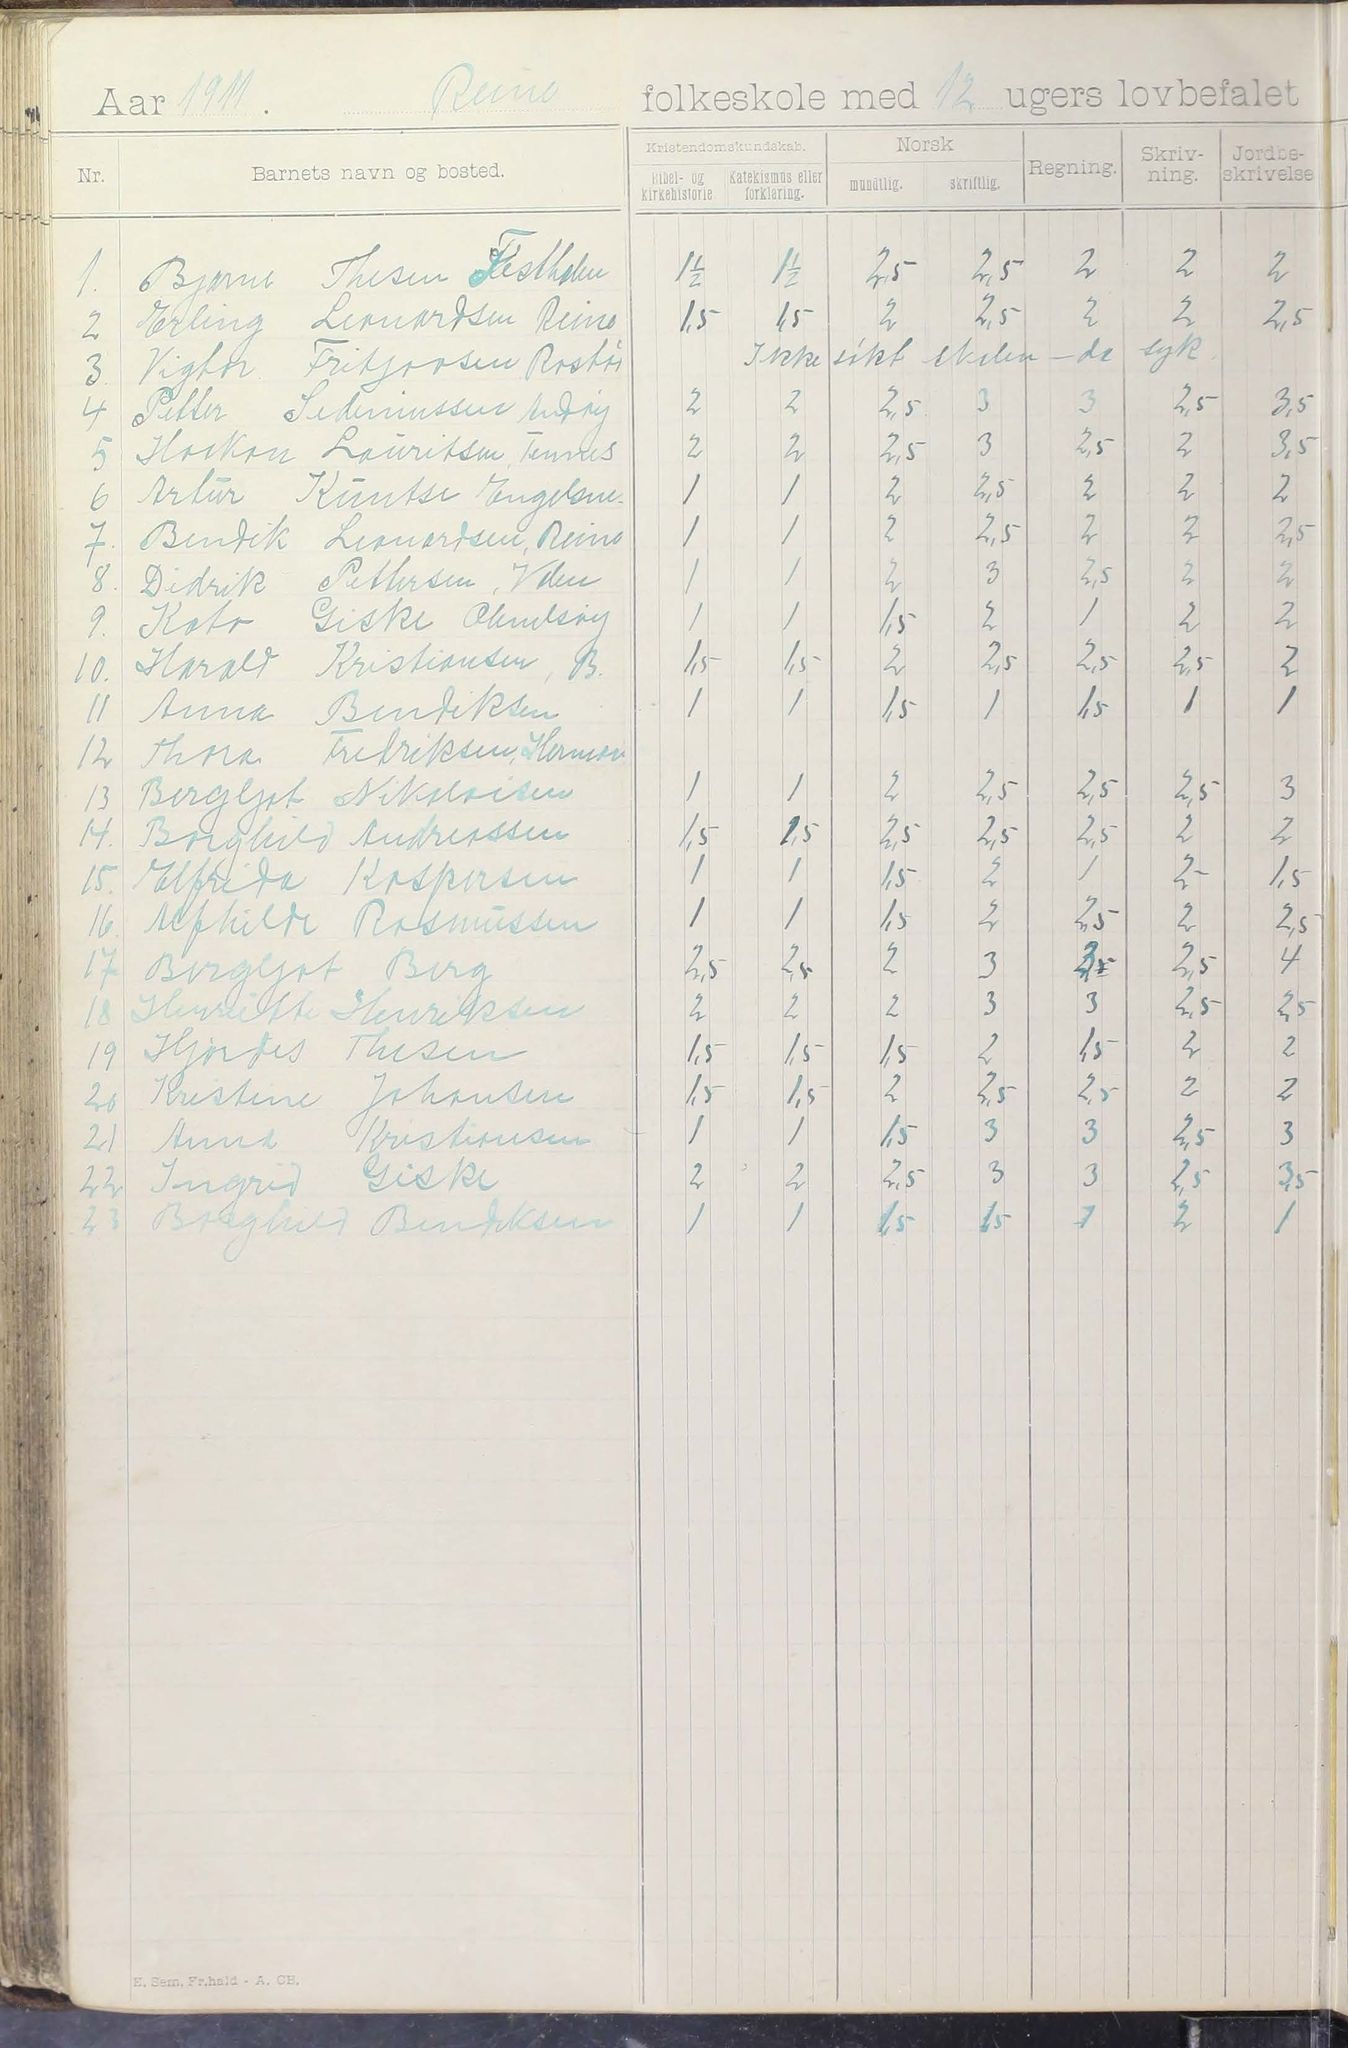 Aar 1911. Reinø folkeskole med 12 ugers lovbefalet
Nr. Barnets navn og bosted. Kristendomskundskab. Norsk Regning. Skriv-ning. Jordbe-skrivelse
Bibel- og kirkehistorie Katekismus eller forklaring. mundtlig. skriftlig.
1. Bjarne Thesen 1½ 1½ 2,5 2,5 2 2 2
2 Erling Leonardsen Reinø 1,5 1,5 2 2,5 2 2 2,5
3. Vigtor Fritjofsen Ikke søkt skolen - da syk
4 Petter Sedeniussen 2 2 2,5 3 3 2,5 3,5
5 Haakon Lauritsen, Tennes 2 2 2,5 3 2,5 2 3,5
6 Artur Kuntse Engelsne. 1 1 2 2,5 2 2 2
7. Bendik Leonardsen, Reinø 1 1 2 2,5 2 2 2,5
8. Didrik Pettersen, 1 1 2 3 2,5 2 2
9. Kato Giske 1 1 1,5 2 1 2 2
10. Harald Kristiansen, B. 1,5 1,5 2 2,5 2,5 2,5 2
11 Anna Bendiksen 1 1 1,5 1 1,5 1 1
12 Thora Fredriksen,
13 Bergljot Nikolaisen 1 1 2 2,5 2,5 2,5 3
14. Borghild Andreassen 1,5 1,5 2,5 2,5 2,5 2 2
15. Elfrida Kaspersen 1 1 1,5 2 1 2- 1,5
16. Alfhilde Rasmussen 1 1 1,5 2 2,5 2 2,5
17 Bergljot Berg 2,5 2,5 2 3 2,5 4
18 Henriette Henriksen 2 2 2 3 3 2,5 2,5
19 Hjördes Thesen 1,5 1,5 1,5 2 1,5 2 2
20 Kristine Johansen 1,5 1,5 2 2,5 2,5 2 2
21 Anna Kristiansen 1 1 1,5 3 3 2,5 3
22 Ingrid Giske 2 2 2,5 3 3 2,5 3,5
23 Borghild Bendiksen 1 1 1,5 1,5 1 2 1
E. Sem, Fr.hald - A. CH.